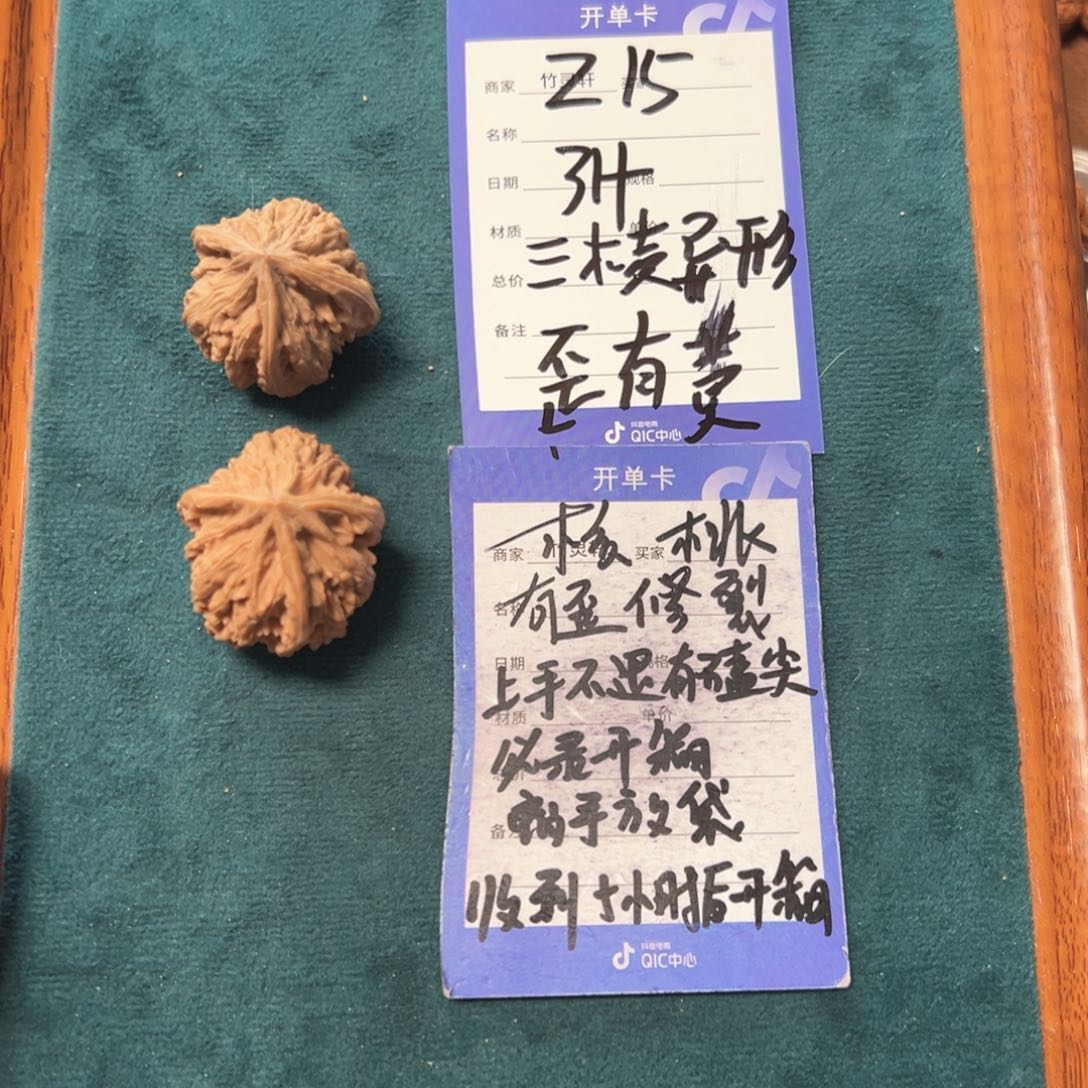 开单卡
商家 竹灵轩
Z 15
名称
日期 规格
34
材质 单价
总价
三棱异形
备注
歪有黄
抖音电商
QIC中心
开单卡
核桃
商家 买家
有歪修裂
名称
日期 规格
上手不退有磕尖
材质 单价
必录开箱
备注
收到 小时后开箱
抖音电商
QIC中心